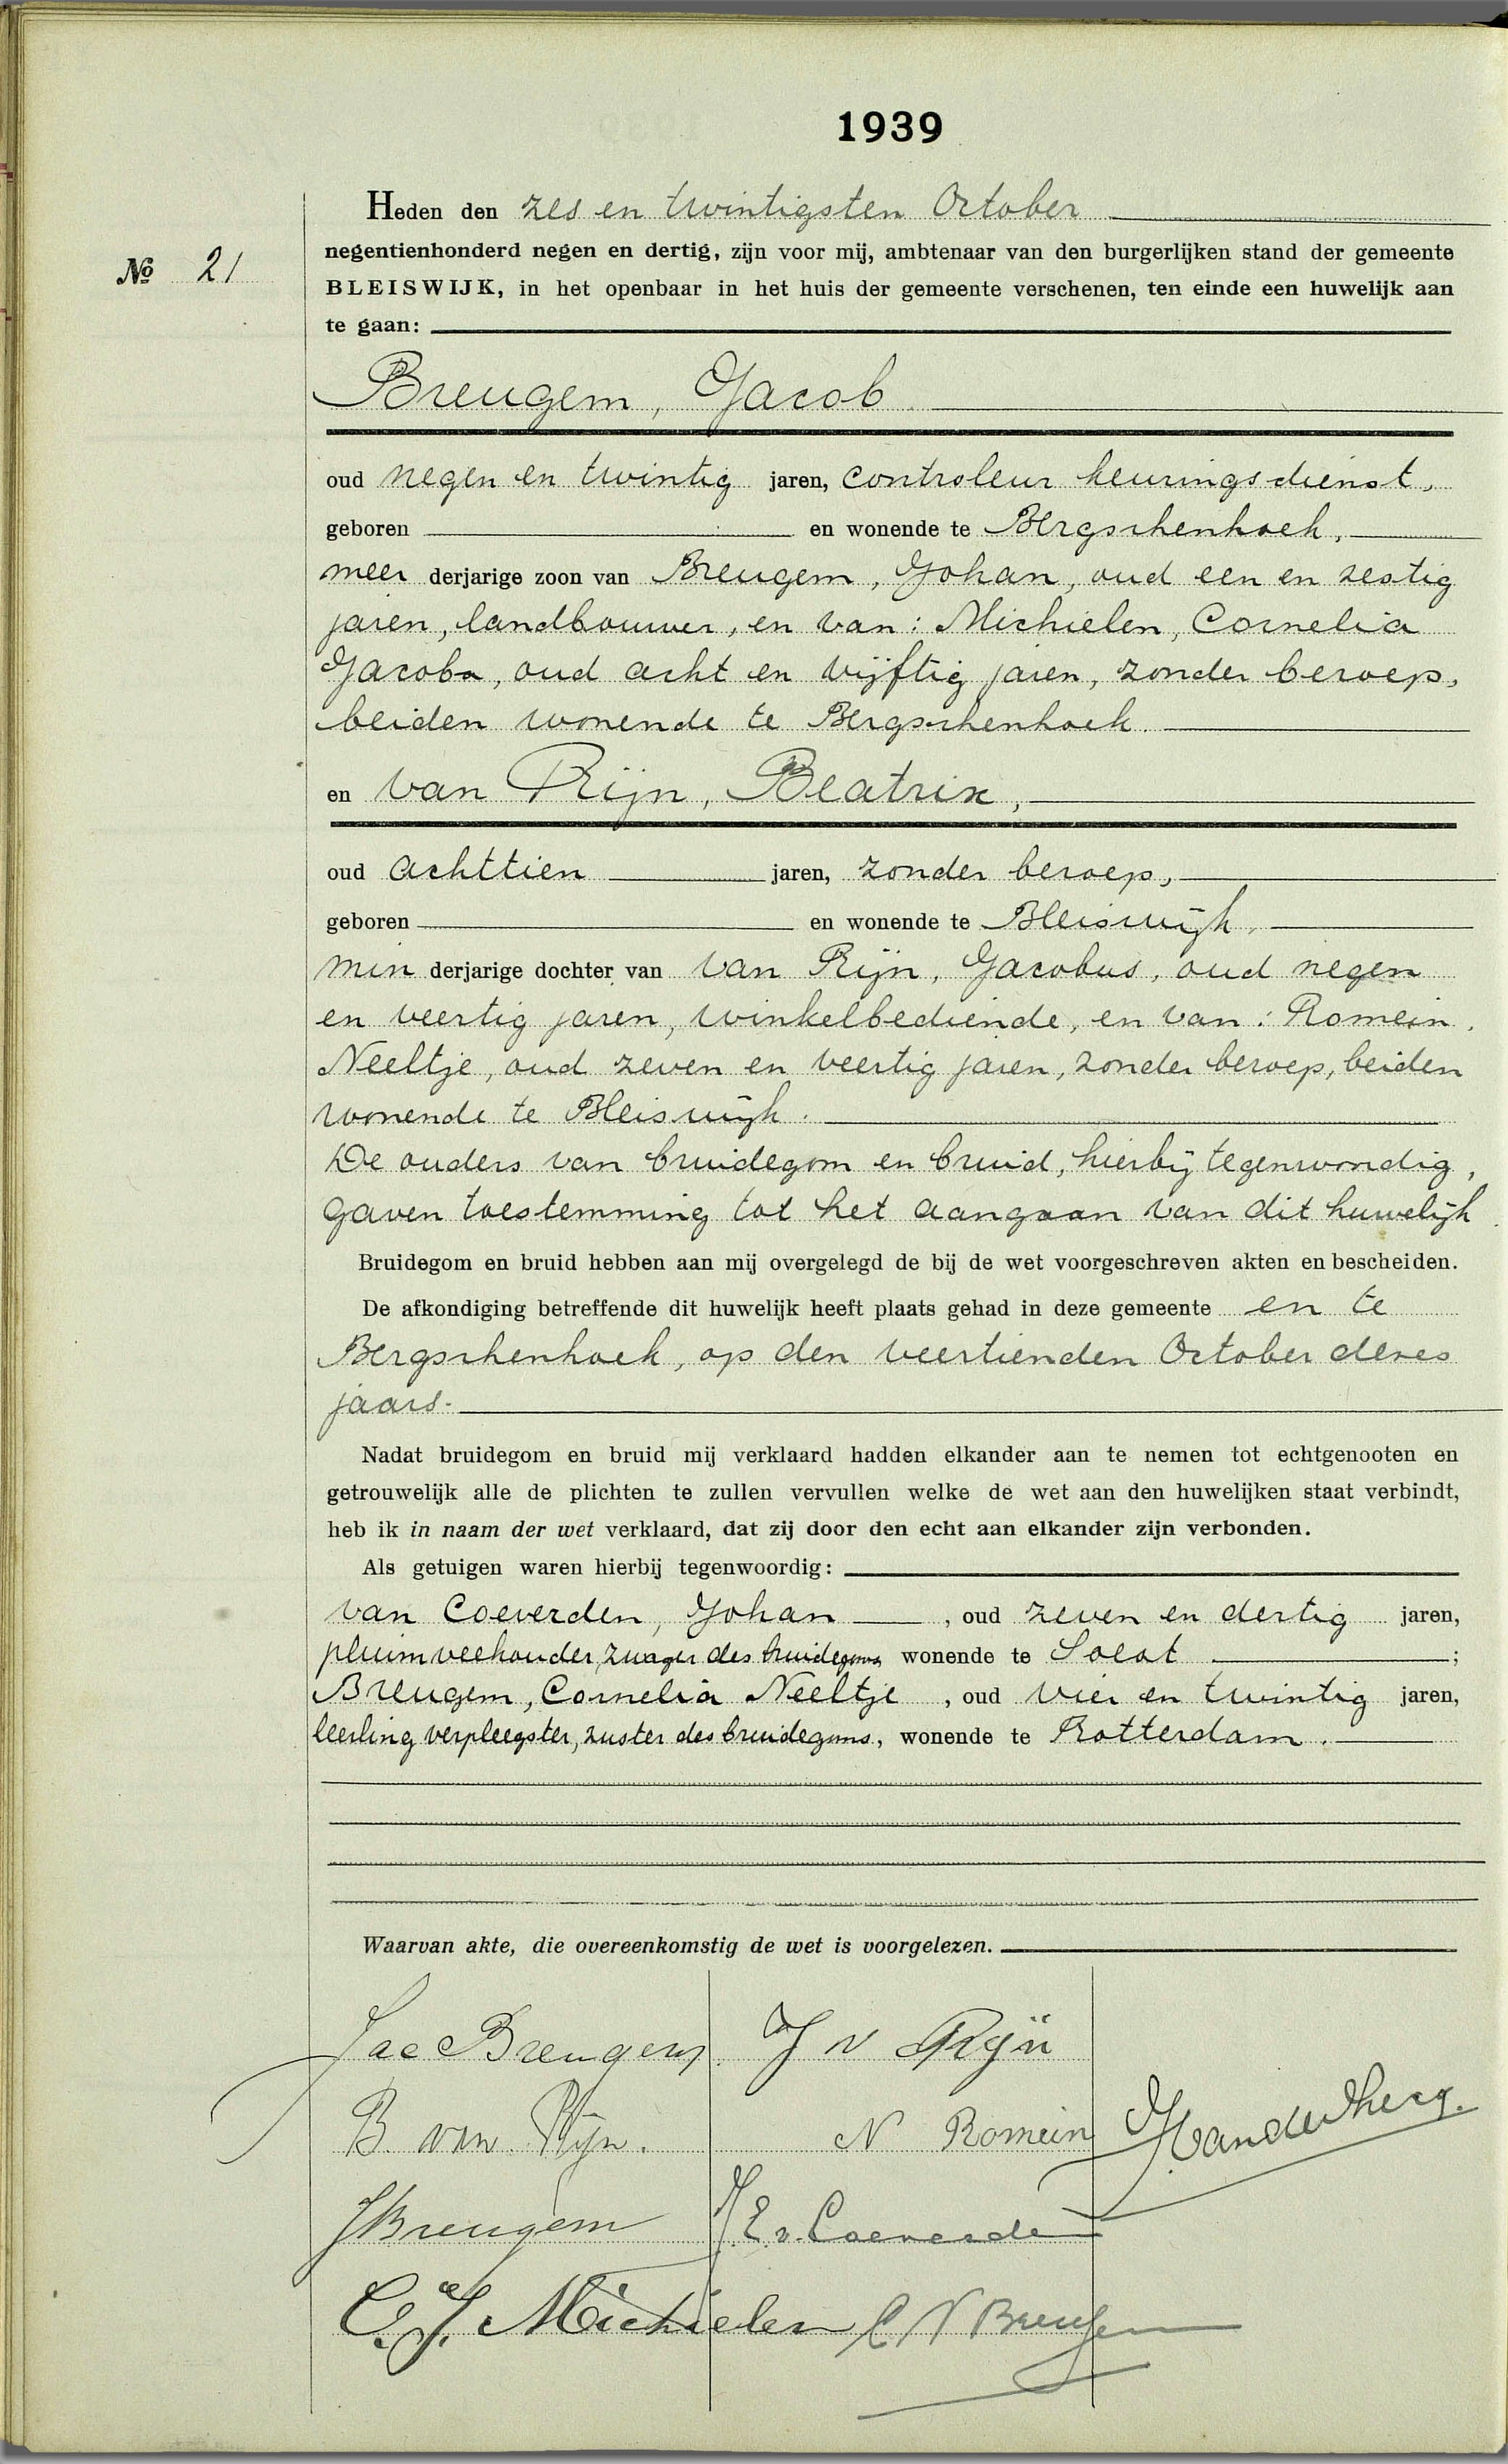 1939
Heden den zes en twintigsten October
negentienhonderd negen en dertig, zijn voor mij, ambtenaar van den burgerlijken stand der gemeente
№ 21
BLEISWIJK, in het openbaar in het huis der gemeente verschenen, ten einde een huwelijk aan
te gaan:
Breugem, Jacob.
oud negen en twintig jaren, controleur keuringsdienst,
geboren en wonende te Bergschenhoek,
meer derjarige zoon van Breugem, Johan, oud een en zestig
jaren, landbouwer, en van: Michielen, Cornelia
Jacoba, oud acht en vijftig jaren, zonder beroep,
beiden wonende te Bergschenhoek.
en van Rijn, Beatrix,
oud achttien jaren, zonder beroep,
geboren en wonende te Bleiswijk,
min derjarige dochter van van Rijn, Jacobus, oud negen
en veertig jaren, winkelbediende, en van: Romein,
Neeltje, oud zeven en veertig jaren, zonder beroep, beiden
wonende te Bleiswijk.
De ouders van bruidegom en bruid, hierbij tegenwoordig,
gaven toestemming tot het aangaan van dit huwelijk.
Bruidegom en bruid hebben aan mij overgelegd de bij de wet voorgeschreven akten en bescheiden.
De afkondiging betreffende dit huwelijk heeft plaats gehad in deze gemeente en te
Bergschenhoek, op den veertienden October dezes
jaars.
Nadat bruidegom en bruid mij verklaard hadden elkander aan te nemen tot echtgenooten en
getrouwelijk alle de plichten te zullen vervullen welke de wet aan den huwelijken staat verbindt,
heb ik in naam der wet verklaard, dat zij door den echt aan elkander zijn verbonden.
Als getuigen waren hierbij tegenwoordig:
van Coeverden, Johan, oud zeven en dertig jaren,
pluimveehouder, zwager des bruidegoms wonende te Soest;
Breugem, Cornelia Neeltje, oud vier en twintig jaren,
leerling verpleegster, zuster des bruidegoms, wonende te Rotterdam.
Waarvan akte, die overeenkomstig de wet is voorgelezen.
Jac Breugem J v Rijn
B. van Rijn. N Romein
JBreugem J E v. Coeverden
C. J. Michielen C N Breugem